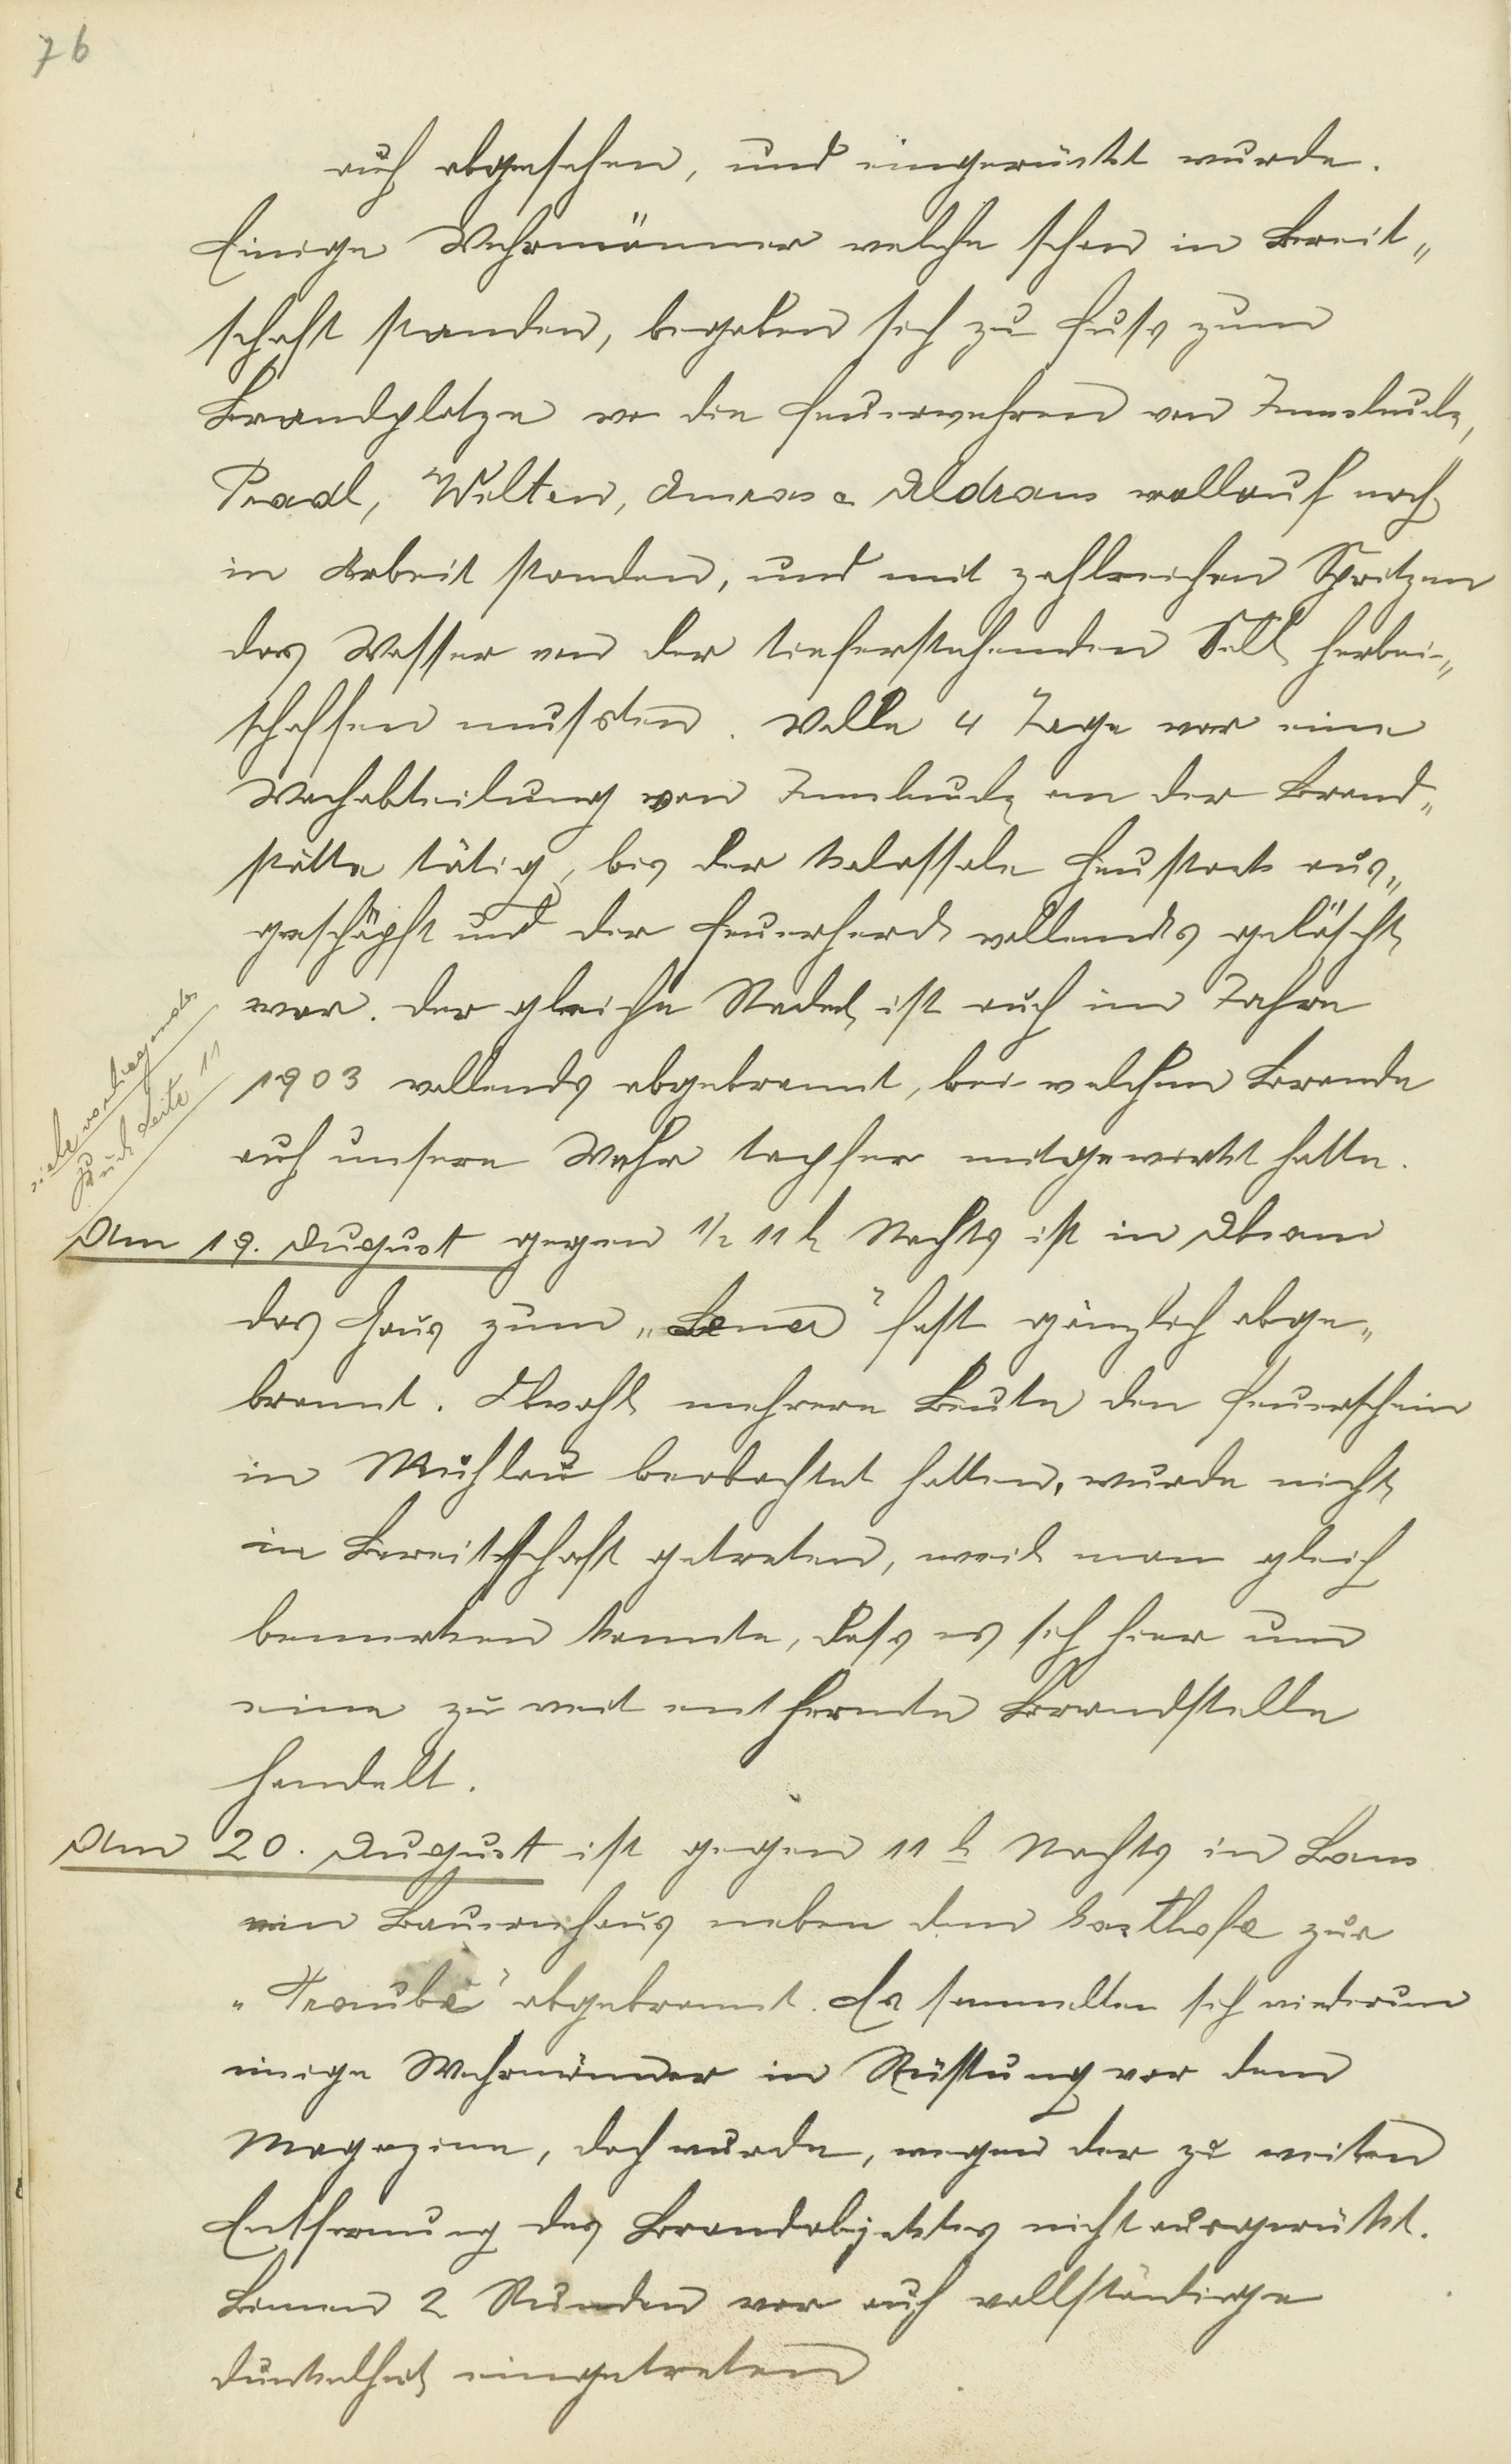 76
auch abgesehen, und eingerückt wurde.
Einige Wehrmänner welche schon in Bereit„
schaft standen, begaben sich zu Fuss zum
Brandplatze wo die Feuerwehren von Innsbruck,
Pradl, Wilten, Amras & Aldrans vollauf noch
in Arbeit standen, und mit zahlreichen Spritzen
das Wasser von der tieferstehenden Sill herbei„
schaffen mussten. Volle 4 Tage war eine
Wachabteilung von Innsbruck an der Brand„
stätte tätig, bis der kolossale Heustock aus„
geschöpft und der Feuerherd vollends gelöscht
war. Der gleiche Stadel ist auch im Jahre
1903 vollends abgebrannt, bei welchem Brande
auch unsere Wehr tapfer mitgewirkt hatte.
siehe vorliegendes
Buch Seite 11
Am 19. August gegen 1/2 11 h Nachts ist in Absam
das Haus zum „Lener" fast gänzlich abge„
brannt. Obwohl mehrere Leute den Feuerschein
in Mühlau beobachtet hatten, wurde nicht
in Bereitschaft getreten, weil man gleich
bemerken konnte, dass es sich hier um
eine zu weit entfernte Brandstelle
handelt.
Am 20. August ist gegen 11 h Nachts in Lans
ein Bauernhaus neben dem Gasthofe zur
„Traube" abgebrannt. Es sammelten sich wiederum
einige Wehrmänner in Rüstung vor dem
Magazine, doch wurde, wegen der zu weiten
Entfernung des Brandobjektes nicht ausgerückt.
Binnen 2 Stunden war auch vollständige
Dunkelheit eingetreten.